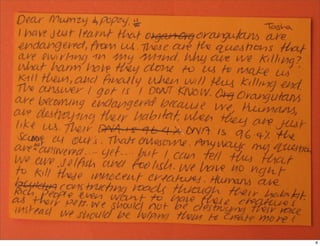 Dear Mumzy & poppy,
Tasha
I have just learnt that orangutans are
endangered, from us. These are the questions that
are swirling in my mind. Why are we killing?
what harm have they done to us to make us
kill them, and finally when will the killing end.
The answer I got is I DONT KNOW. Orangutans
are becoming endangered because we, Humans
are destroying their habitat, when they are just
like us. Their DNA is 96.4% the
same as ours. Thats awesome. Anyways my question
are answered... yet... but I can tell this that
we are selfish and foolish. We have no right
to kill these innocent creatures. Humans are
constructing roads through their habitat.
Rich people even want to have these creatures
as their pets. We should not be destroying their race
instead we should be helping them to create more!